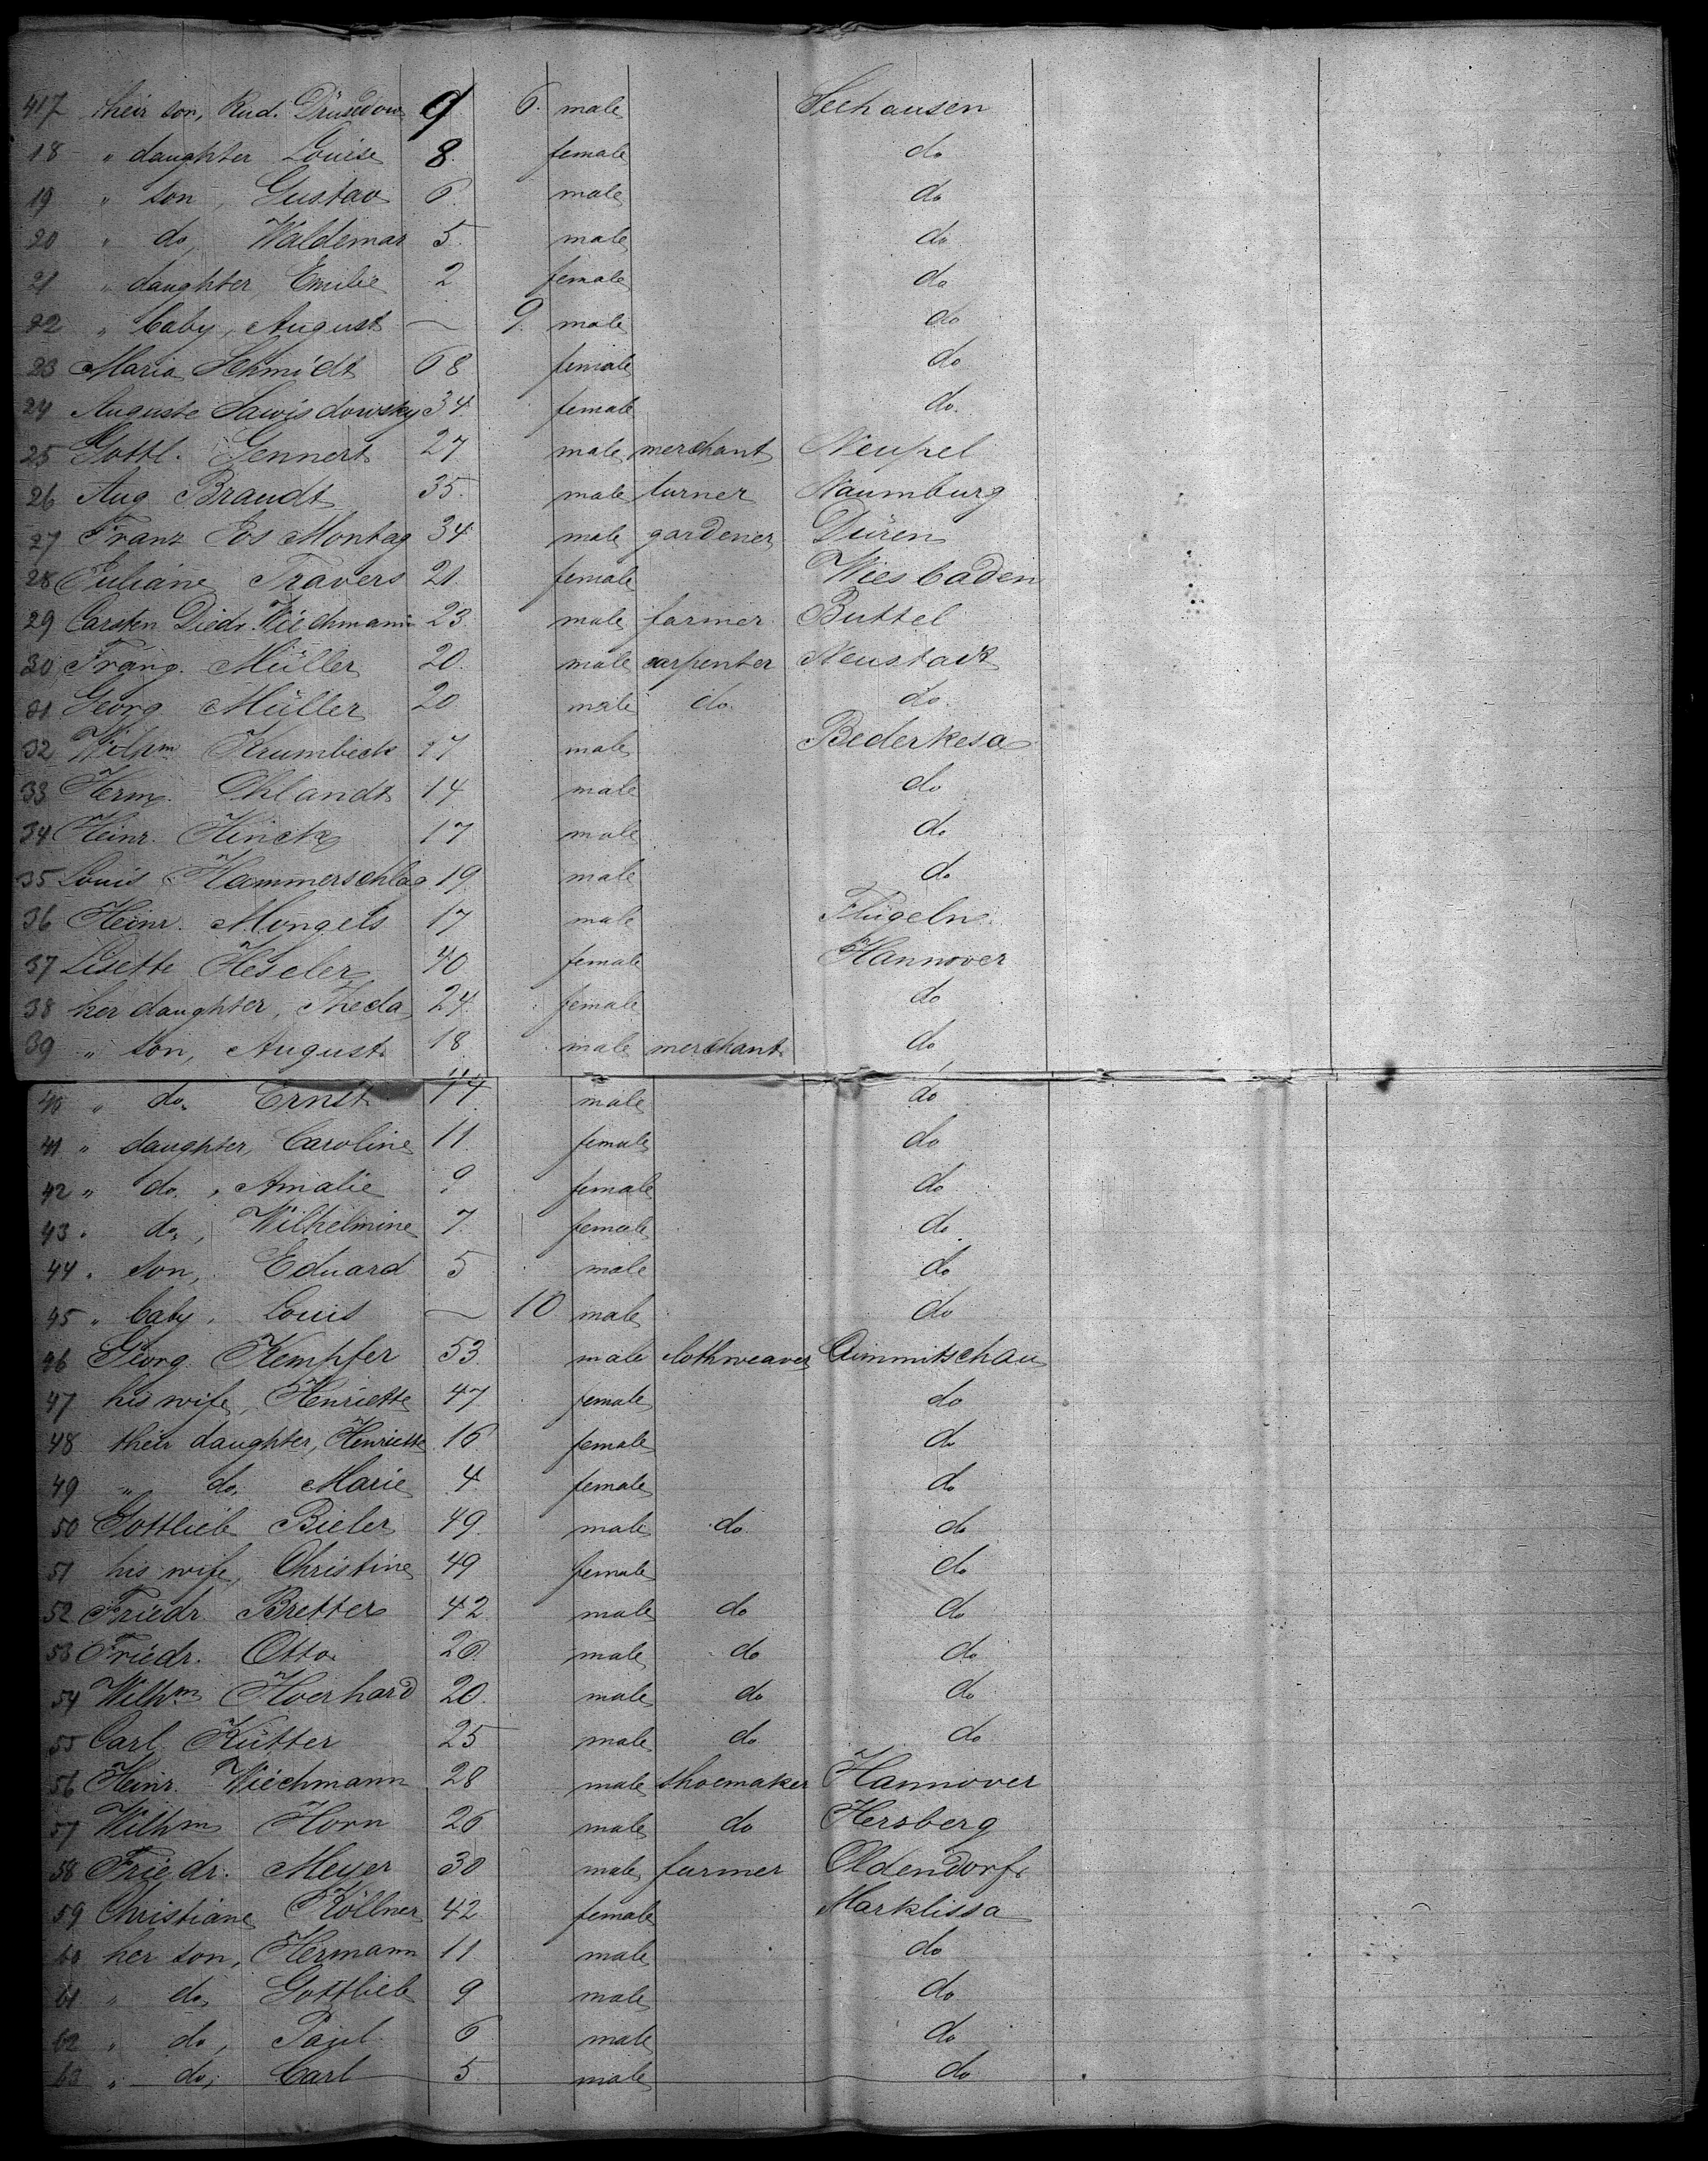 417 their son, Rud. Drusedow 9 6. male Seehausen
18 " daughter Louise 8. female do
19 " son, Gustav 6. male do
20 " do, Waldemar 5. male do
21 " daughter Emilie 2 female do
22 " baby, August — 9. male do
23 Maria Schmidt 68 female do
24 Auguste Sawisdowsky 34 female do.
25 Gottl. Gennert 27 male merchant
26 Aug Brandt 35. male turner Naumburg
27 Franz Montag 34 male gardener Düren
28 Juliane Travers 21 female Wiesbaden
29 Carsten Diedr. Wiechmann 23. male farmer Buttel
30 Franz. Müller 20. male carpenter Neustadt
31 Georg Müller 20 male do. do.
32 Wilhm Krumbeck 17 male Bederkesa
33 Herm. Ohlandt 14 male do
34 Heinr. Hinck 17 male do
35 Louis Hammerschlag 19. male do
36 Heinr. Mongels 17 male Flügeln
37 Lisette Heseler 40 female Hannover
38 her daughter, Theda 24 female do
39 " son, August 18 male merchant do
40 " do. Ernst male do
41 " daughter, Caroline 11. female do
42 " do., Amalie 9 female do
43 " do., Wilhelmine 7. female do.
44 " son, Eduard 5 male do
45 " baby, Louis — 10 male do
46 Georg Kempfer 53. male clothweaver Crimmitschau
47 his wife, Henriette 47 female do
48 their daughter, Henriette 16. female do
49 " do. Marie 4 female do
50 Gottlieb Bieler 49. male do. do
51 his wife, Christine 49 female do
52 Friedr Bretter 42 male do do
53 Friedr. Otto 26. male do do
54 Wilhm Hverhard 20. male do do
55 Carl Kütter 25 male do do
56 Heinr. Wiechmann 28 male shoemaker Hannover
57 Wilhm Horn 26 male do Hersberg
58 Friedr. Meyer 30 male farmer Oldendorf
59 Christiane Köllner 42 female Marklissa
60 her son, Hermann 11 male do
61 " do, Gottlieb 9 male do
62 " do, Paul 6 male do
63 " do, Carl 5 male do